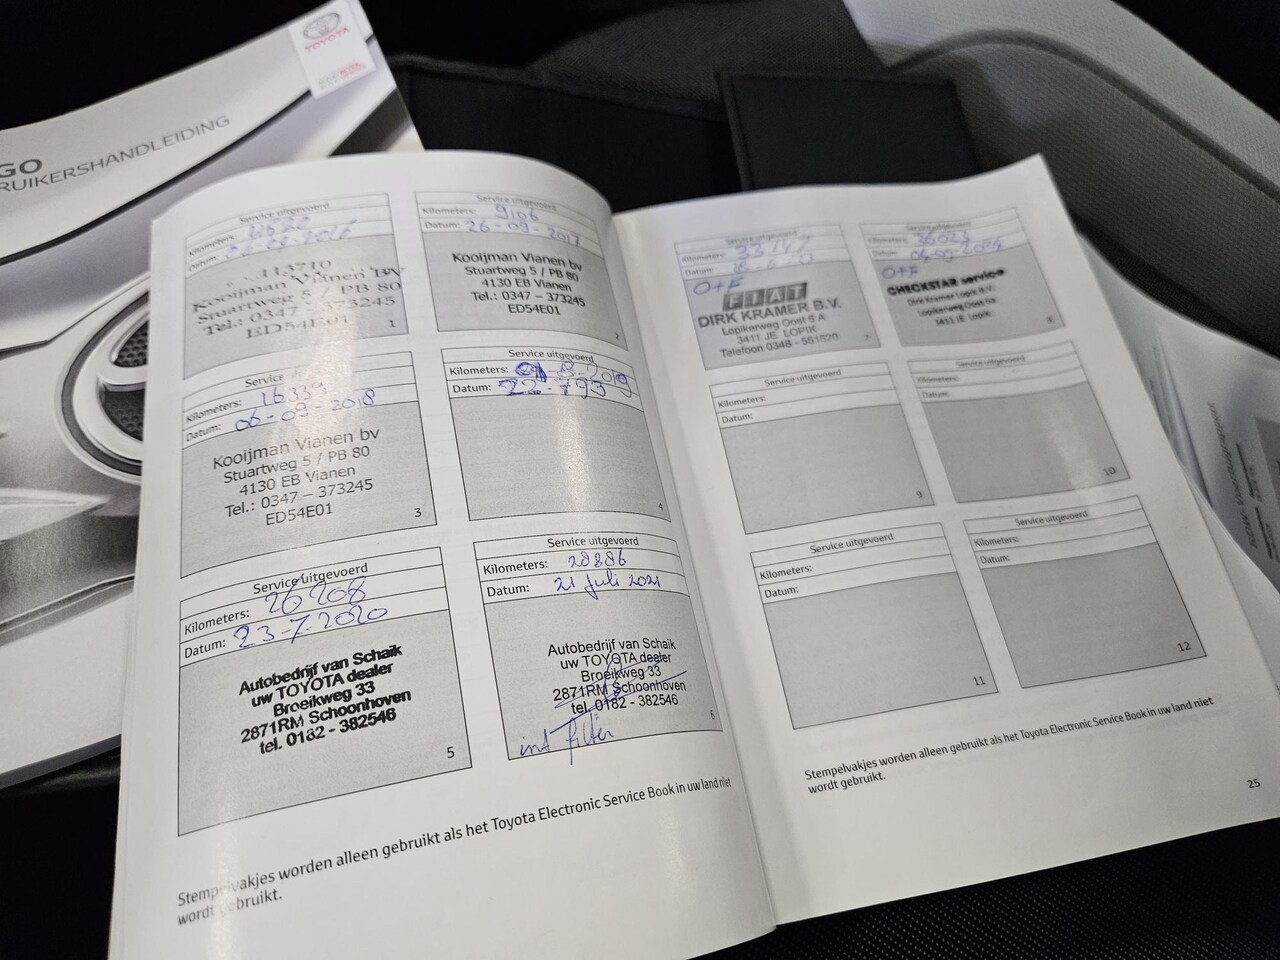 TOYOTA
GO
RUIKERSHANDLEIDING
Service uitgevoerd
Kilometers:
Datum:
113710
Kooijman Vianen BV
Stuartweg 5 / PB 80
Tel.: 0347 - 373245
ED54E01
1
Service uitgevoerd
Kilometers: 9106
Datum: 26-09-2017
Kooijman Vianen bv
Stuartweg 5 / PB 80
4130 EB Vianen
Tel.: 0347 – 373245
ED54E01
2
Service
Kilometers: 16339
Datum: 06-09-2018
Kooijman Vianen bv
Stuartweg 5 / PB 80
4130 EB Vianen
Tel.: 0347 – 373245
ED54E01
3
Service uitgevoerd
Kilometers:
Datum: 22-793
4
Service uitgevoerd
Kilometers: 26208
Datum: 23-7-2020
Autobedrijf van Schaik
uw TOYOTA dealer
Broeikweg 33
2871RM Schoonhoven
tel. 0182 - 382546
5
Service uitgevoerd
Kilometers: 28886
Datum: 21 juli 2021
Autobedrijf van Schaik
uw TOYOTA dealer
Broeikweg 33
2871RM Schoonhoven
tel. 0182 - 382546
int filter
6
Stempelvakjes worden alleen gebruikt als het Toyota Electronic Service Book in uw land niet
wordt gebruikt.
Service uitgevoerd
Kilometers:
Datum:
O+F
FIAT
DIRK KRAMER B.V.
Lopikerweg Oost 6 A
3411 JE LOPIK
Telefoon 0348 - 551520
7
Service uitgevoerd
Kilometers:
Datum:
O+F
CHECKSTAR service
Dirk Kramer Lopik B.V.
Lopikerweg Oost 6a
3411 JE Lopik
8
Service uitgevoerd
Kilometers:
Datum:
9
Service uitgevoerd
Kilometers:
Datum:
10
Service uitgevoerd
Kilometers:
Datum:
11
Service uitgevoerd
Kilometers:
Datum:
12
Stempelvakjes worden alleen gebruikt als het Toyota Electronic Service Book in uw land niet
wordt gebruikt.
25